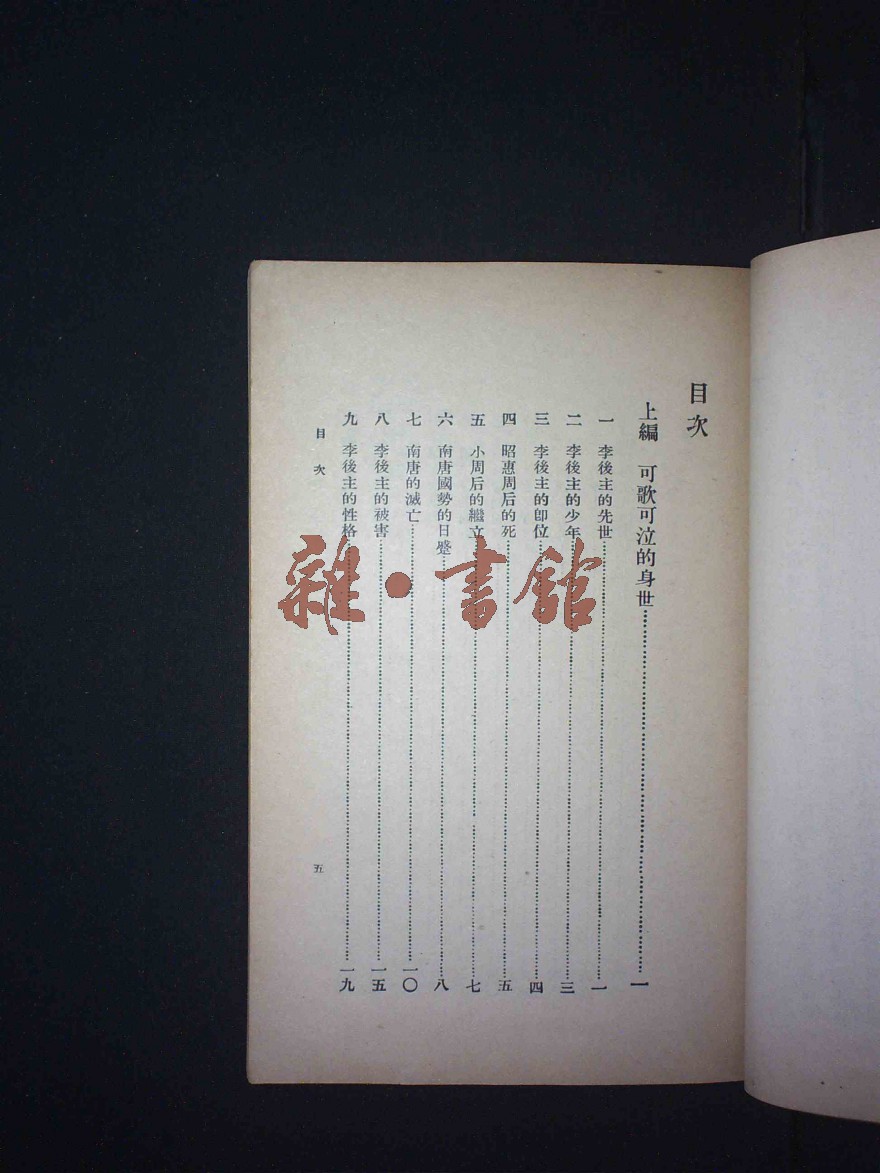 目次
上編　可歌可泣的身世……一
一　李後主的先世……一
二　李後主的少年……三
三　李後主的卽位……四
四　昭惠周后的死……五
五　小周后的繼立……七
六　南唐國勢的日蹙……八
七　南唐的滅亡……一〇
八　李後主的被害……一五
九　李後主的性格……一九
目次
五
雜·書館